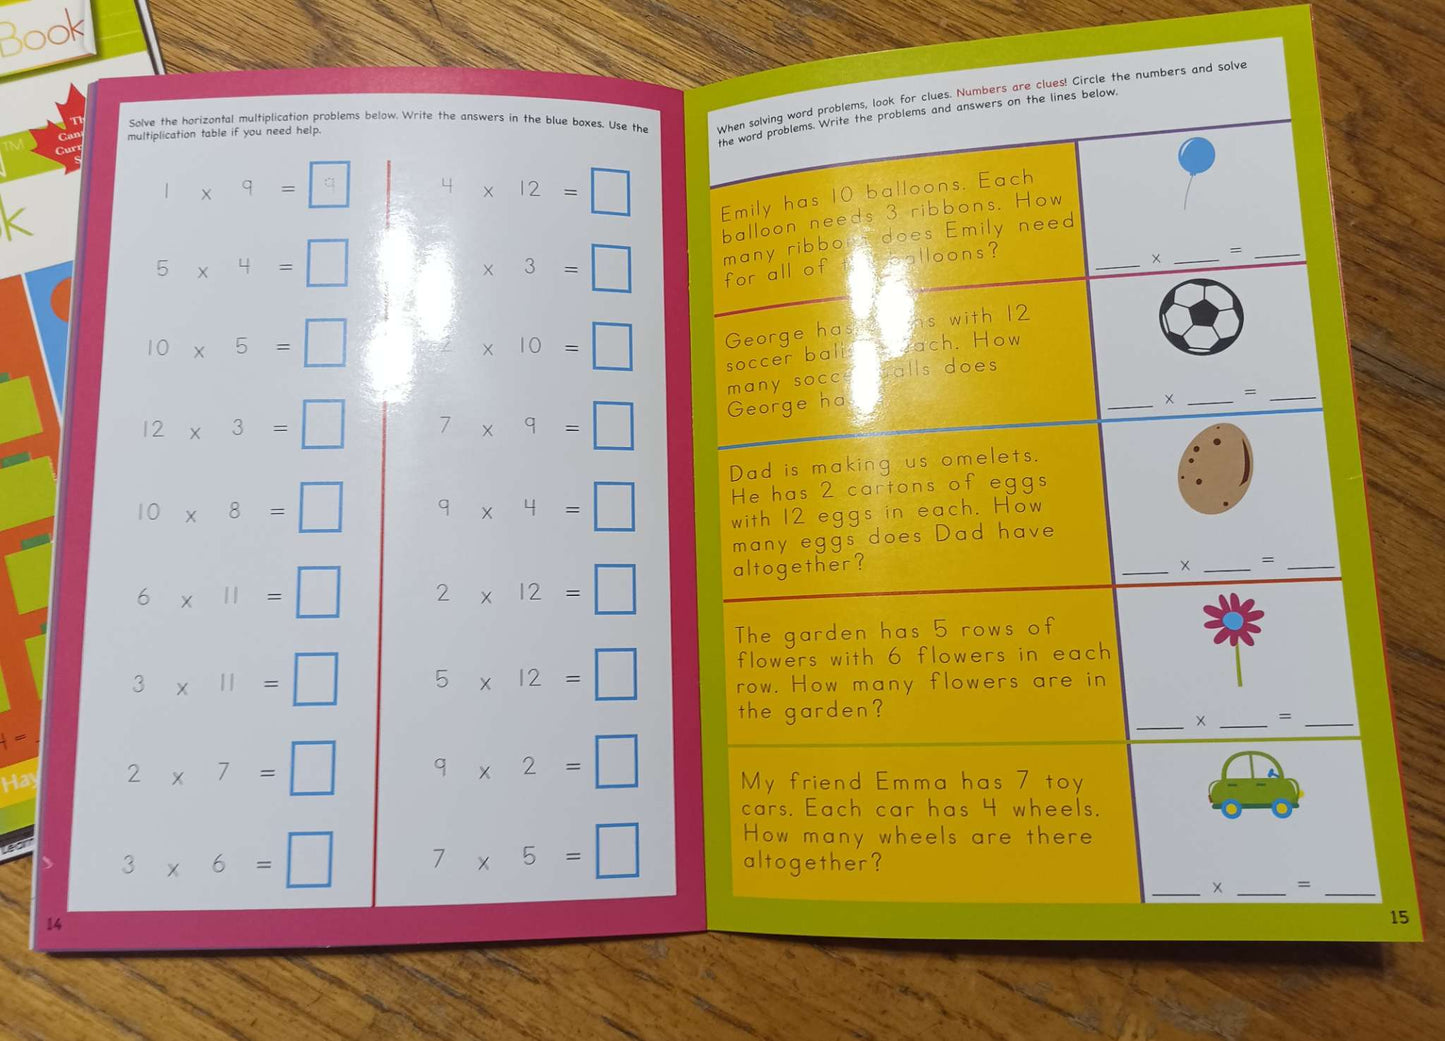 Book
TM
Th
Can
Curr
S
k
4 =
Hay
Learn
Solve the horizontal multiplication problems below. Write the answers in the blue boxes. Use the
multiplication table if you need help.
1 x 9 = 9
5 x 4 =
10 x 5 =
12 x 3 =
10 x 8 =
6 x 11 =
3 x 11 =
2 x 7 =
3 x 6 =
4 x 12 =
x 3 =
2 x 10 =
7 x 9 =
9 x 4 =
2 x 12 =
5 x 12 =
9 x 2 =
7 x 5 =
14
When solving word problems, look for clues. Numbers are clues! Circle the numbers and solve
the word problems. Write the problems and answers on the lines below.
Emily has 10 balloons. Each
balloon needs 3 ribbons. How
many ribbons does Emily need
for all of balloons?
___ x ___ = ___
George has with 12
soccer balls each. How
many soccer balls does
George ha
___ x ___ = ___
Dad is making us omelets.
He has 2 cartons of eggs
with 12 eggs in each. How
many eggs does Dad have
altogether?
___ x ___ = ___
The garden has 5 rows of
flowers with 6 flowers in each
row. How many flowers are in
the garden?
___ x ___ = ___
My friend Emma has 7 toy
cars. Each car has 4 wheels.
How many wheels are there
altogether?
___ x ___ = ___
15